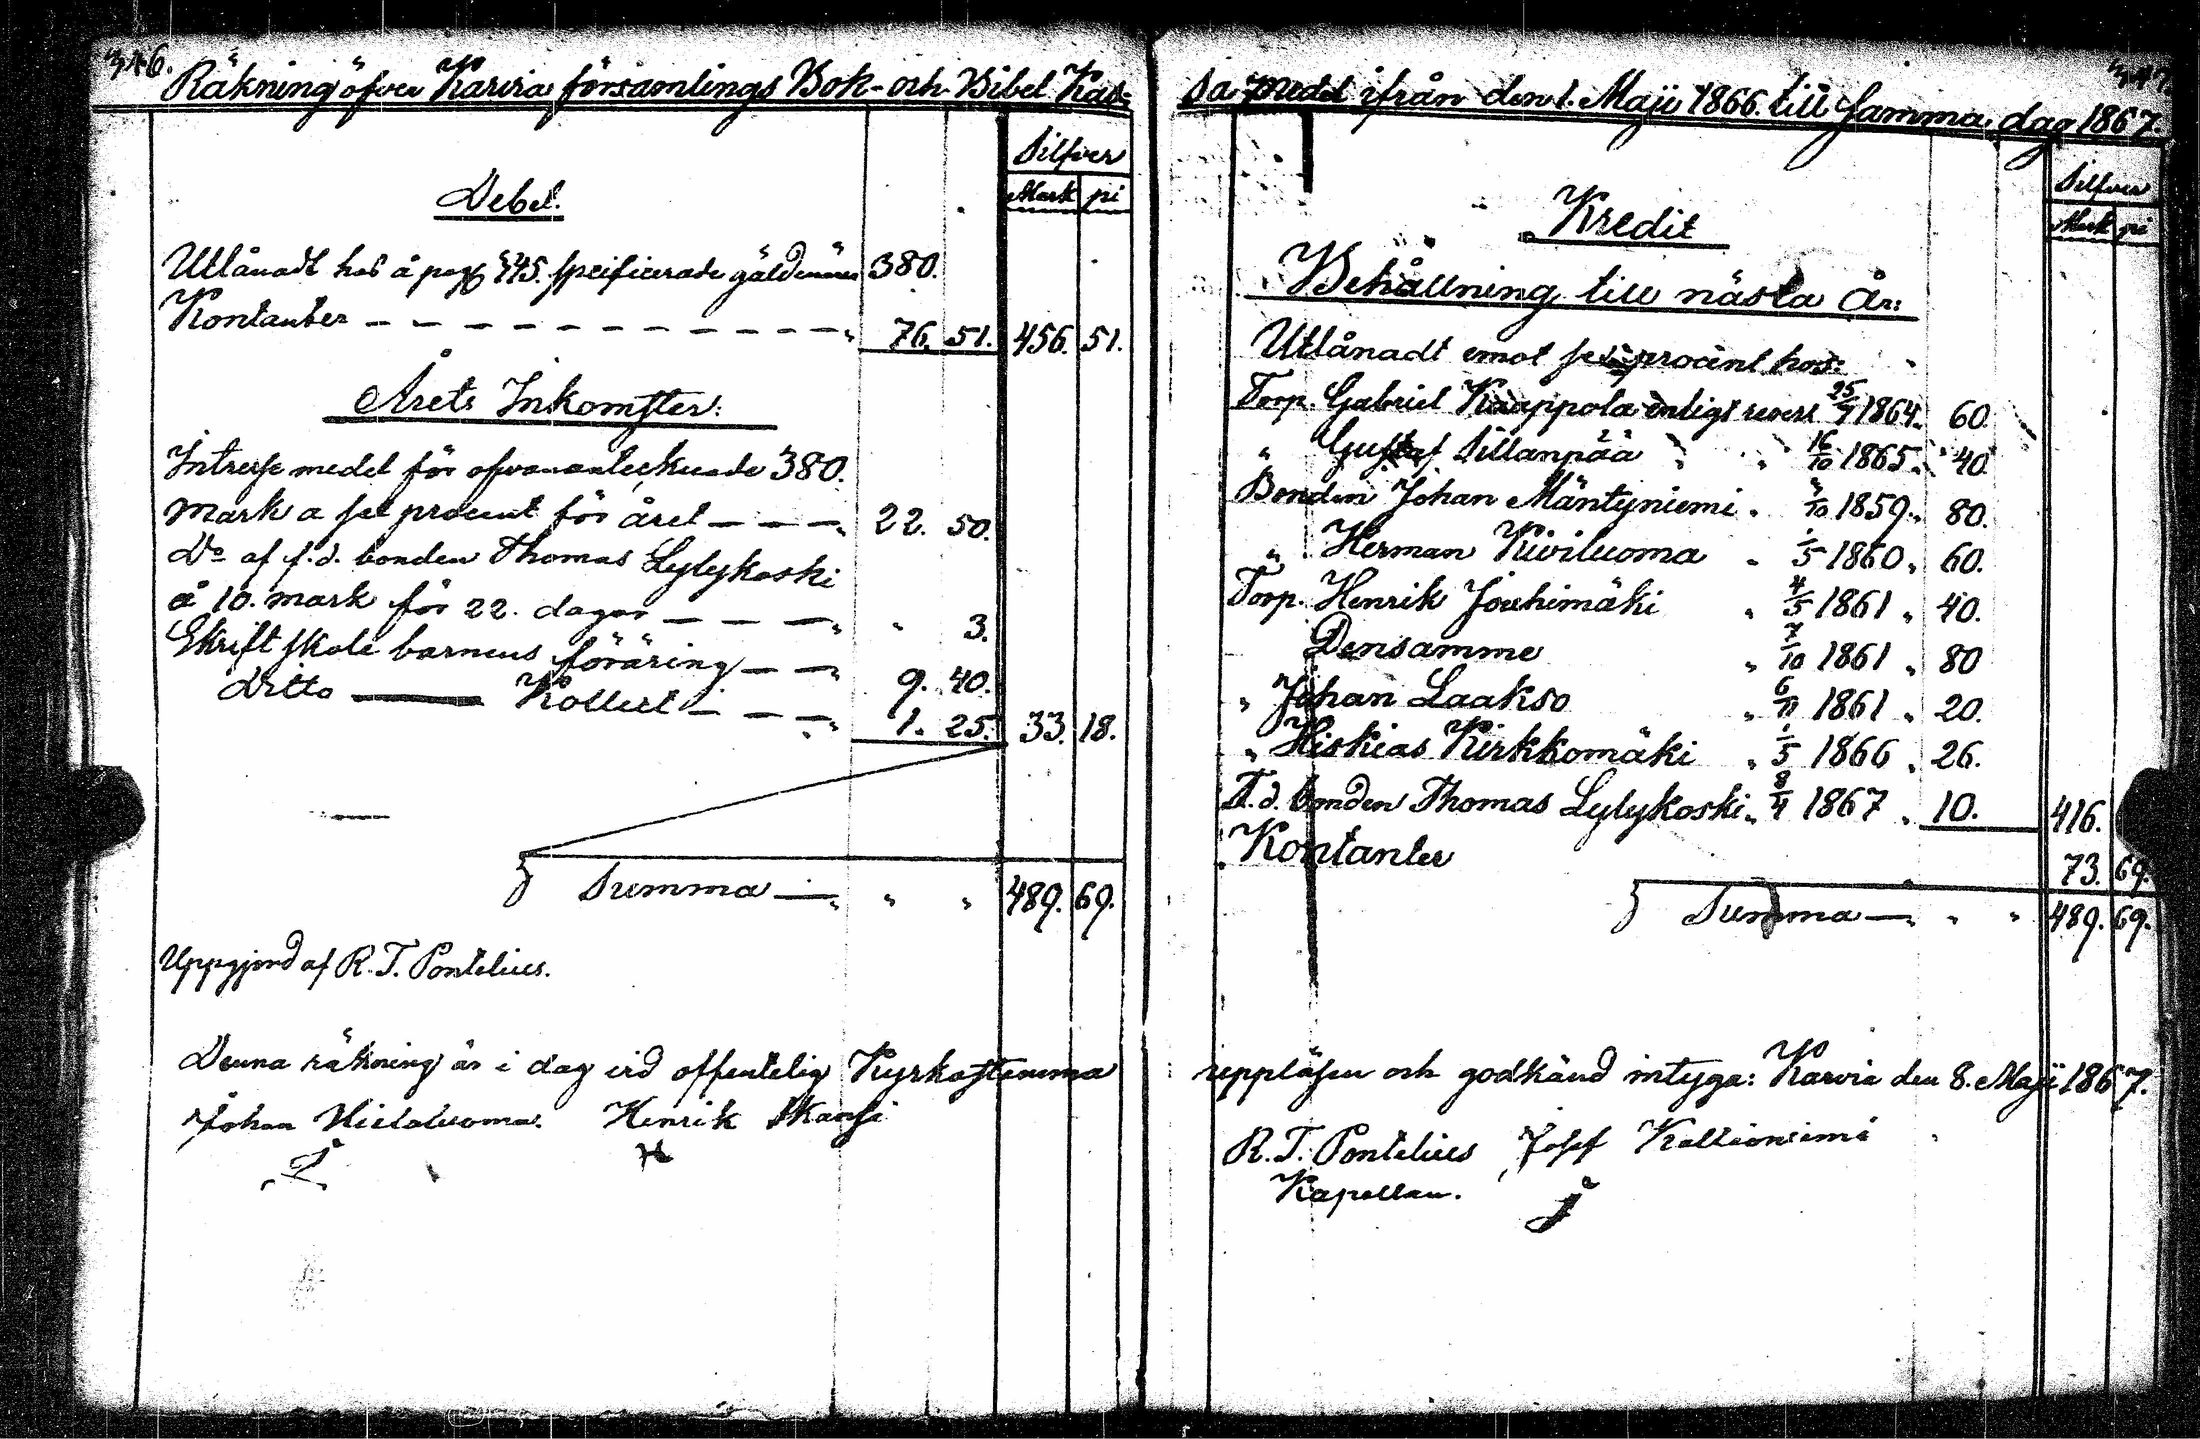 346.
Räkning öfver Karvia församlings Bok- och Bibel Kas-
Silfver
Mark pi
Debet.
Utlånadt hos å pag 345. specificerade gäldenärer 380.
Kontanter — — — 76. 51. 456. 51.
Årets Inkomster:
Intresse medel för ofvanantecknade 380.
mark a sex procent för året — — — 22. 50.
Do af f.d. bonden Thomas Lylykoski
å 10. mark för 22. dagar — — — " 3.
Skriftskole barnens föräring — — 9. 40.
Ditto — Kollect — — — 1. 25. 33. 18.
Summa — " " 489. 69.
Uppgjord af R. T. Pontelius.
Denna räkning är i dag vid offentelig Kyrkostemma
Johan Hietaluoma. Henrik Skansi
H
347.
sa medel ifrån den 1. Maji 1866. till samma dag 1867.
Silfver
Mark pi
Kredit
Behållning till nästa År:
Utlånadt emot sex procent hos:
Torp. Gabriel Kaappola enligt revers 25/7 1864. 60.
" Gustaf Sillanpää " " 16/10 1865. " 40
Bonden Johan Mäntyniemi " /10 1859. " 80.
" Herman Kiviluoma " 1/5 1860 " 60.
Torp. Henrik Jouhimäki " 4/5 1861 " 40.
Densamme " 7/10 1861 " 80
" Johan Laakso " 6/11 1861 " 20.
" Hiskias Kirkkomäki " 1/5 1866 " 26.
F.d. bonden Thomas Lylykoski " 8/4 1867 " 10. 416.
Kontanter 73. 69.
Summa — " " 489. 69.
uppläsen och godkänd intyga: Karvia den 8. Maji 1867.
R. T. Pontelius Josef Kallioniemi
Kapellan.